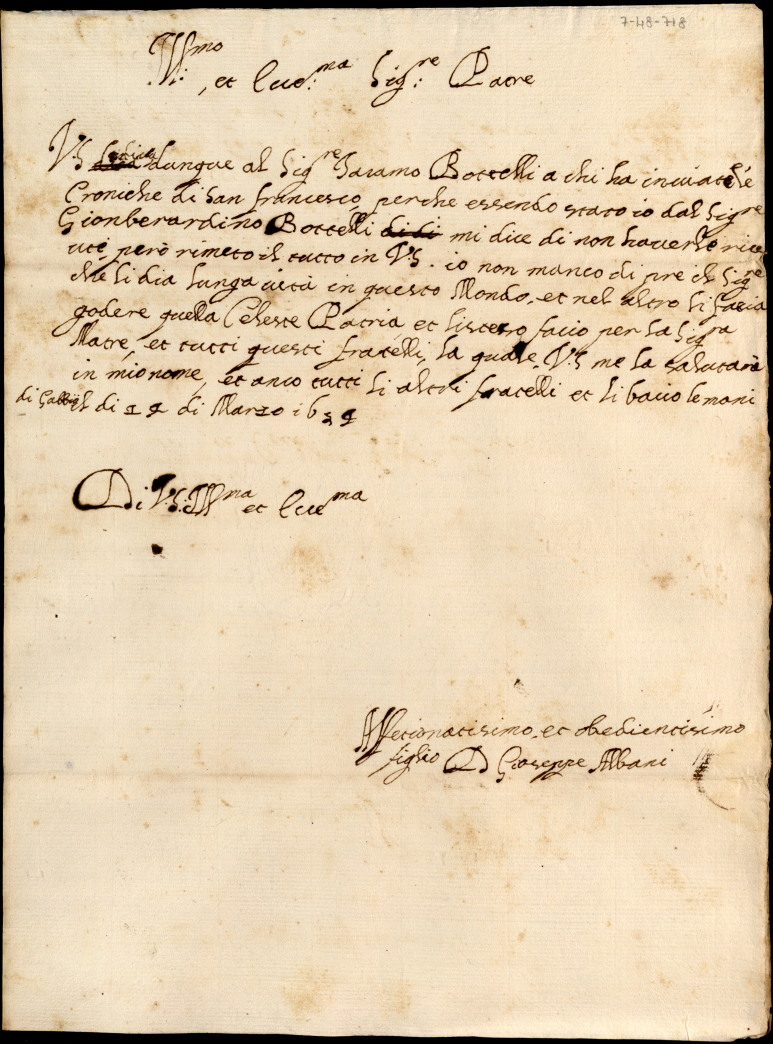 7-48-718
Ill:mo, et Ecc:ma Sig:re Patre
VS dica dunque al Sigre Giacamo Bottelli a chi ha inviate le
Croniche di San francesco, perche essendo stato io dal Sigre
Gionberardino Bottelli di di mi dice di non haverle rice
ute però rimeto il tutto in VS. io non manco di pre il Sigre
che li dia lunga vita in questo Mondo, et nel altro li facia
godere quella Celeste Patria et listesso facio per la Sigra
Matre, et tutti questi fratelli, la quale VS me la salutarà
in mio nome, et anco tutti li altri fratelli et li bacio le mani
di Gabbi il di 14 di Marzo 16
Di V:S: Illma et Eccma
Affecionatisimo et obedientisimo
figlio D Gioseppe Albani